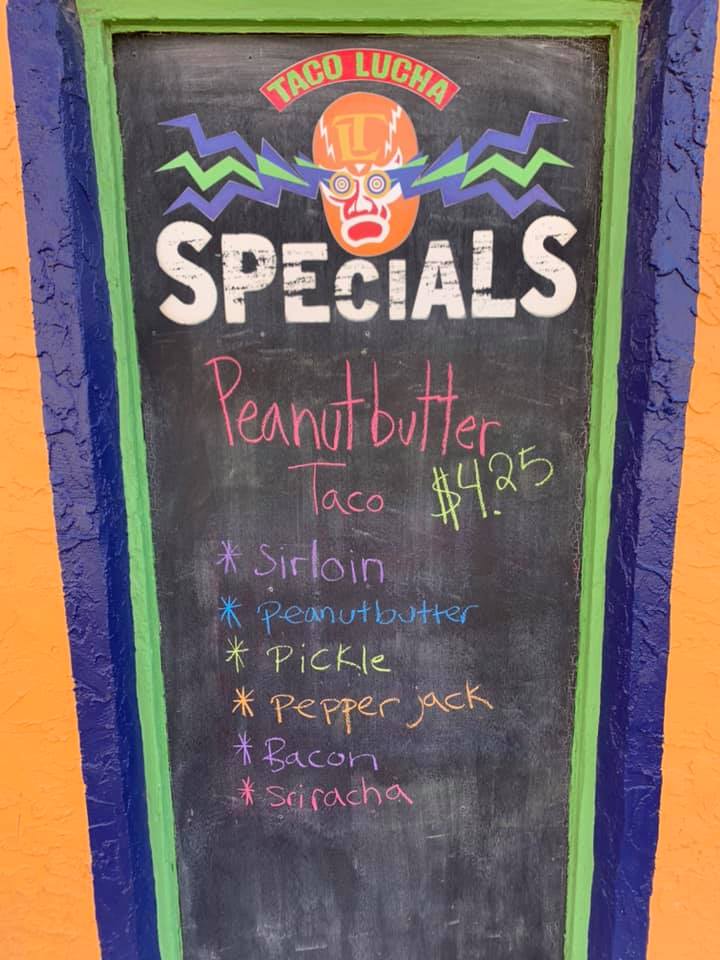 TACO LUCHA
LT
SPECIALS
Peanutbutter
Taco $4.25
* Sirloin
* Peanutbutter
* Pickle
* Pepper jack
* Bacon
* Sriracha